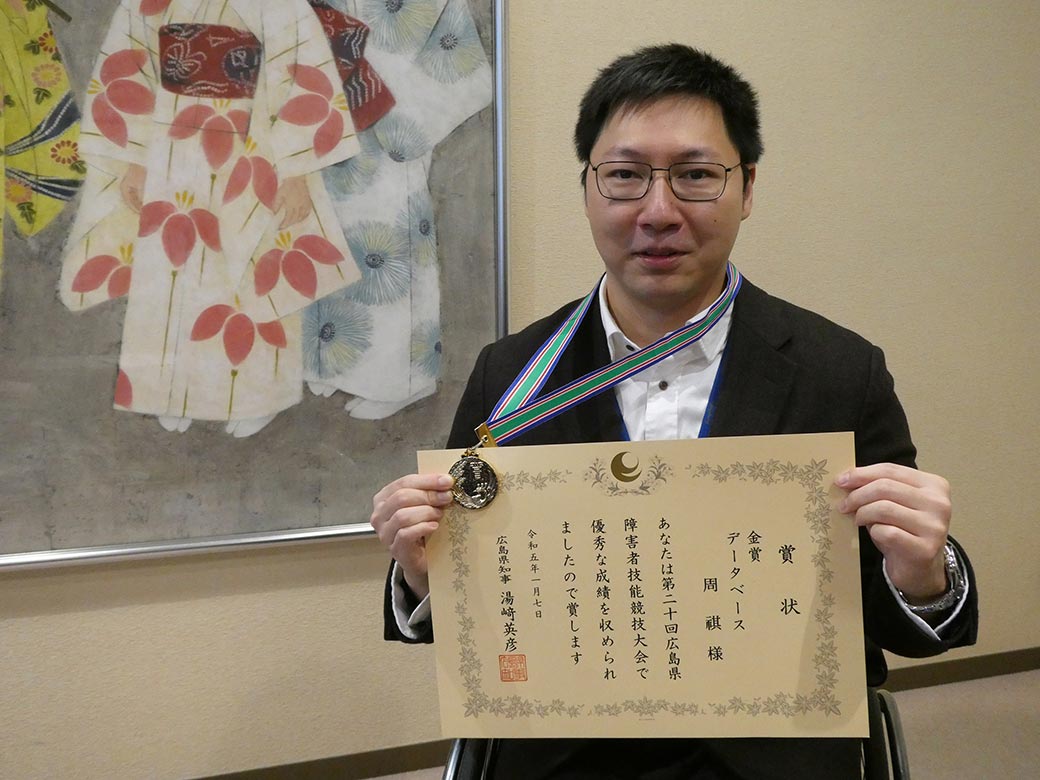 賞状
金賞
データベース
周祺様
あなたは第二十回広島県
障害者技能競技大会で
優秀な成績を収められ
ましたので賞します
令和五年一月七日
広島県知事 湯﨑英彦